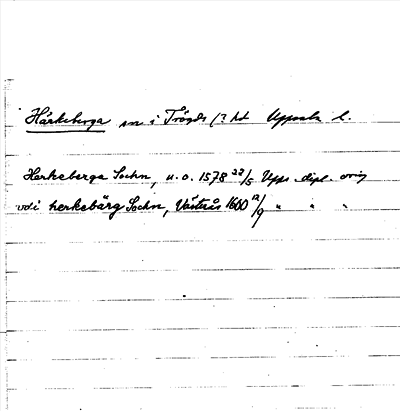 Härkeberga sn i Trögds hd Uppsala l.
Herkeberga Sochn, u.o. 1578 22/5 Upps. dipl. orig
vdi herkebärg Sochn, Västerås 1600 12/9 " " "